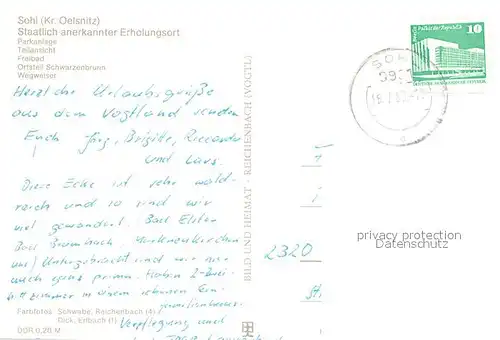 Sohl (Kr. Oelsnitz)
Staatlich anerkannter Erholungsort
Parkanlage
Teilansicht
Freibad
Ortsteil Schwarzenbrunn
Wegweiser
Herzliche Urlaubsgrüße
aus dem Vogtland senden
Euch Jörg, Brigitte, Riccardo
und Lars.
Diese Ecke ist sehr wald-
reich und so sind wir
viel gewandert. Bad Elster
Bad Brambach, Markneukirchen
usw. Untergebracht sind wir
auch ganz prima. Haben 2-Zwei-
bettzimmer in einem schönen Ein-
familienhaus.
Verpflegung und
Farbfotos: Schwabe, Reichenbach (4)
Dick, Erlbach (1)
DDR 0,20 M
BILD UND HEIMAT · REICHENBACH (VOGTL)
Palast der Republik
10
2320
privacy protection
Datenschutz